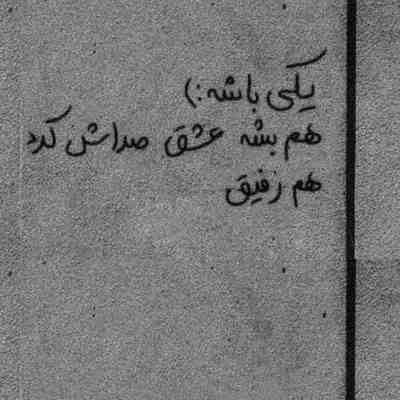 یکی باشه :)
هم بشه عشق صداش کرد
هم رفیق